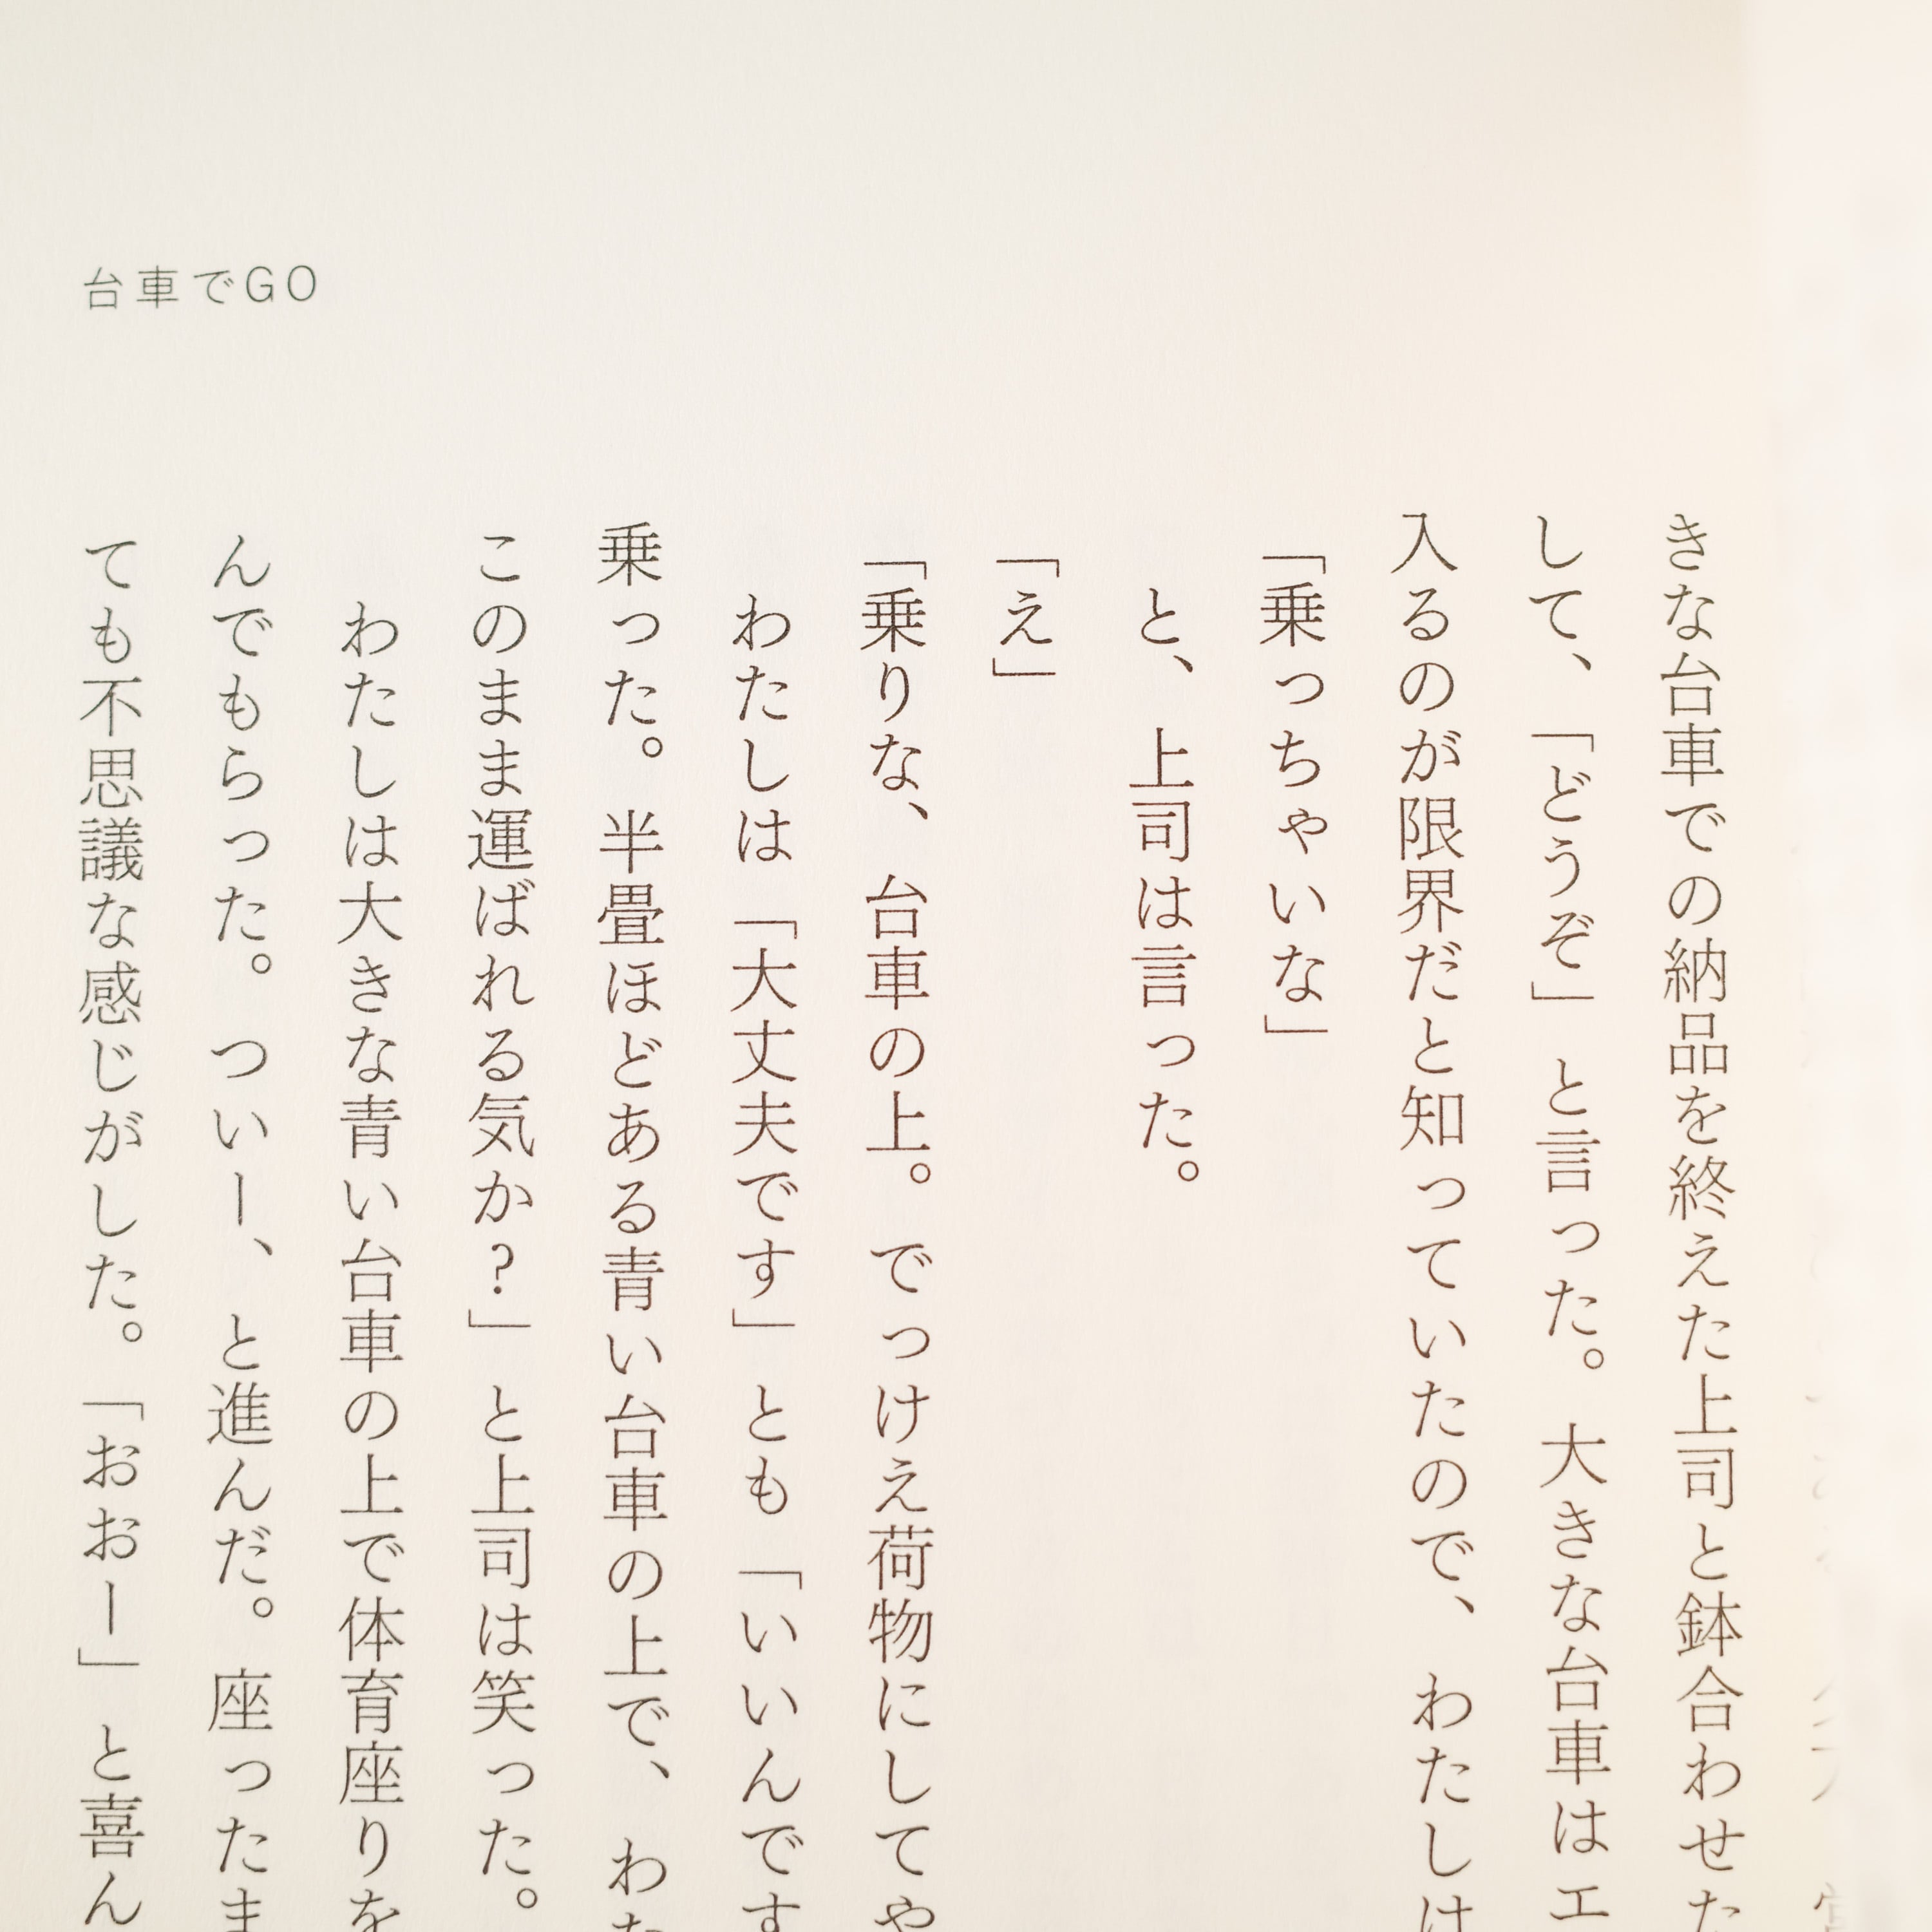 台車でGO
きな台車での納品を終えた上司と鉢合わせた
して、「どうぞ」と言った。大きな台車はエ
入るのが限界だと知っていたので、わたしは
「乗っちゃいな」
と、上司は言った。
「え」
「乗りな、台車の上。でっけえ荷物にしてや
わたしは「大丈夫です」とも「いいんです
乗った。半畳ほどある青い台車の上で、わた
このまま運ばれる気か?」と上司は笑った。
わたしは大きな青い台車の上で体育座りを
んでもらった。ついー、と進んだ。座ったま
ても不思議な感じがした。「おおー」と喜ん